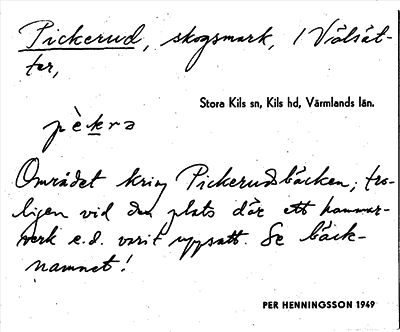 Pickerud, skogsmark, i Vålsät-
ter,
Stora Kils sn, Kils hd, Värmlands län.
pè̀kra
Området kring Pickerudsbäcken, tro-
ligen vid den plats där ett hammar-
verk e.d. varit uppsatt. Se bäck-
namnet!
PER HENNINGSSON 1949